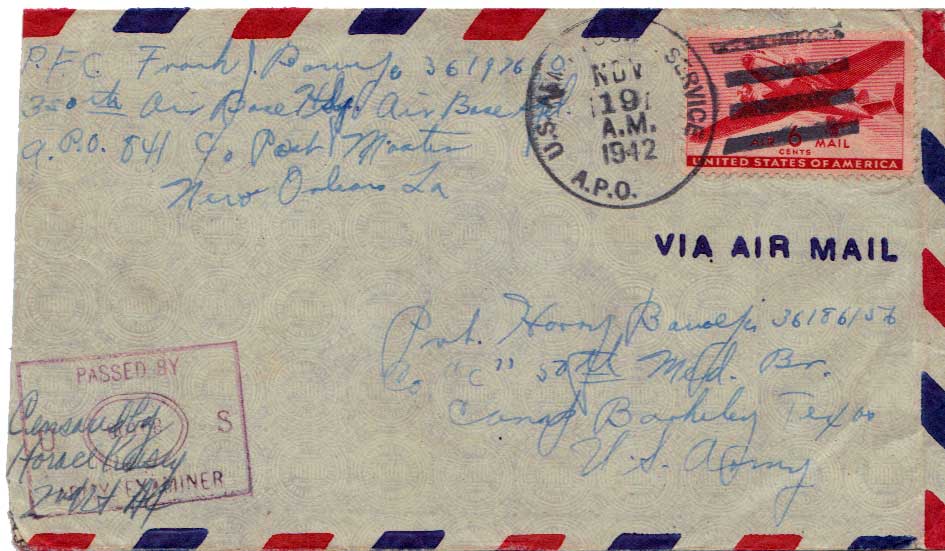 P.F.C. Frank J.
350th Air Base Hdq. Air Base
A.P.O. 841 c/o Post Master
New Orleans La
U.S. SERVICE
NOV
19
A.M.
1942
A.P.O.
AIR 6 MAIL
CENTS
UNITED STATES OF AMERICA
VIA AIR MAIL
Pvt. Harry 36186156
Co "C" 50th Med. Bn.
Camp Barkeley Texas
U.S. Army
PASSED BY
S
ARMY EXAMINER
Censored by
Horace
2nd Lt